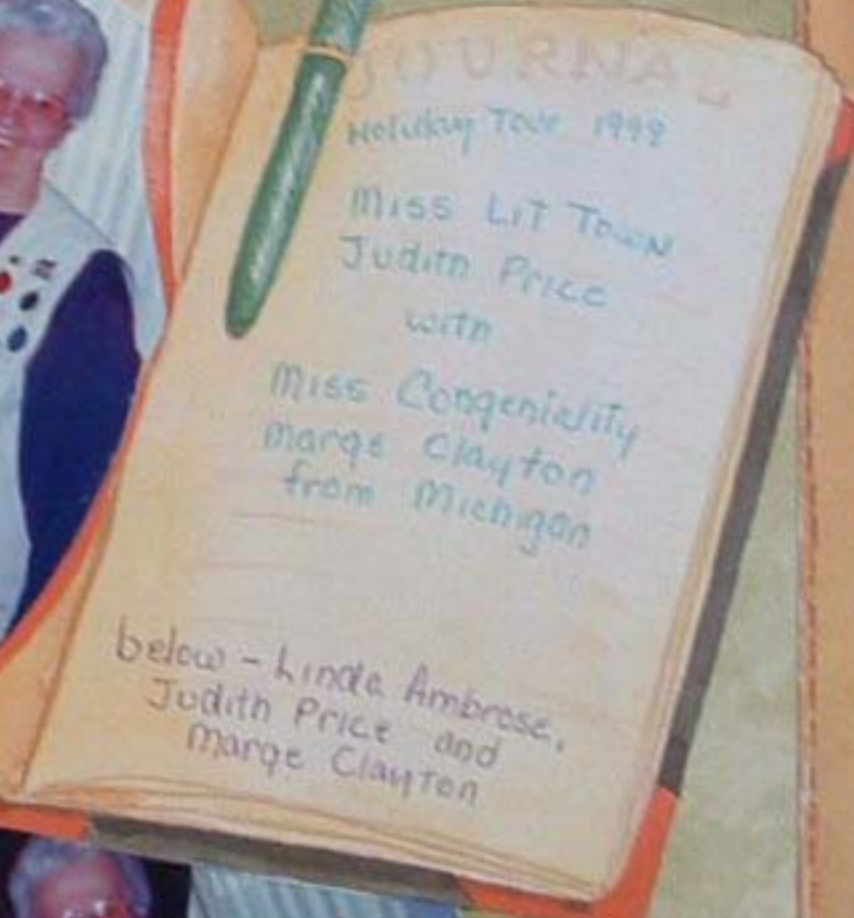 JOURNAL
Holiday Tour 1998
Miss Lit Town
Judith Price
with
Miss Congeniality
Marge Clayton
from Michigan
below - Linda Ambrose,
Judith Price and
Marge Clayton